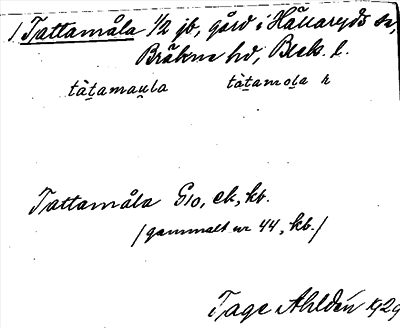 1. Tattamåla 1/2 jb, gård i Hällaryds sn,
Bräkne hd, Blek. l.
tàt̠amau̠la tàt̠amo̠la r
Tattamåla G10, ek, kb.
/gammalt nr 44, kb./
Tage Ahldén 1929